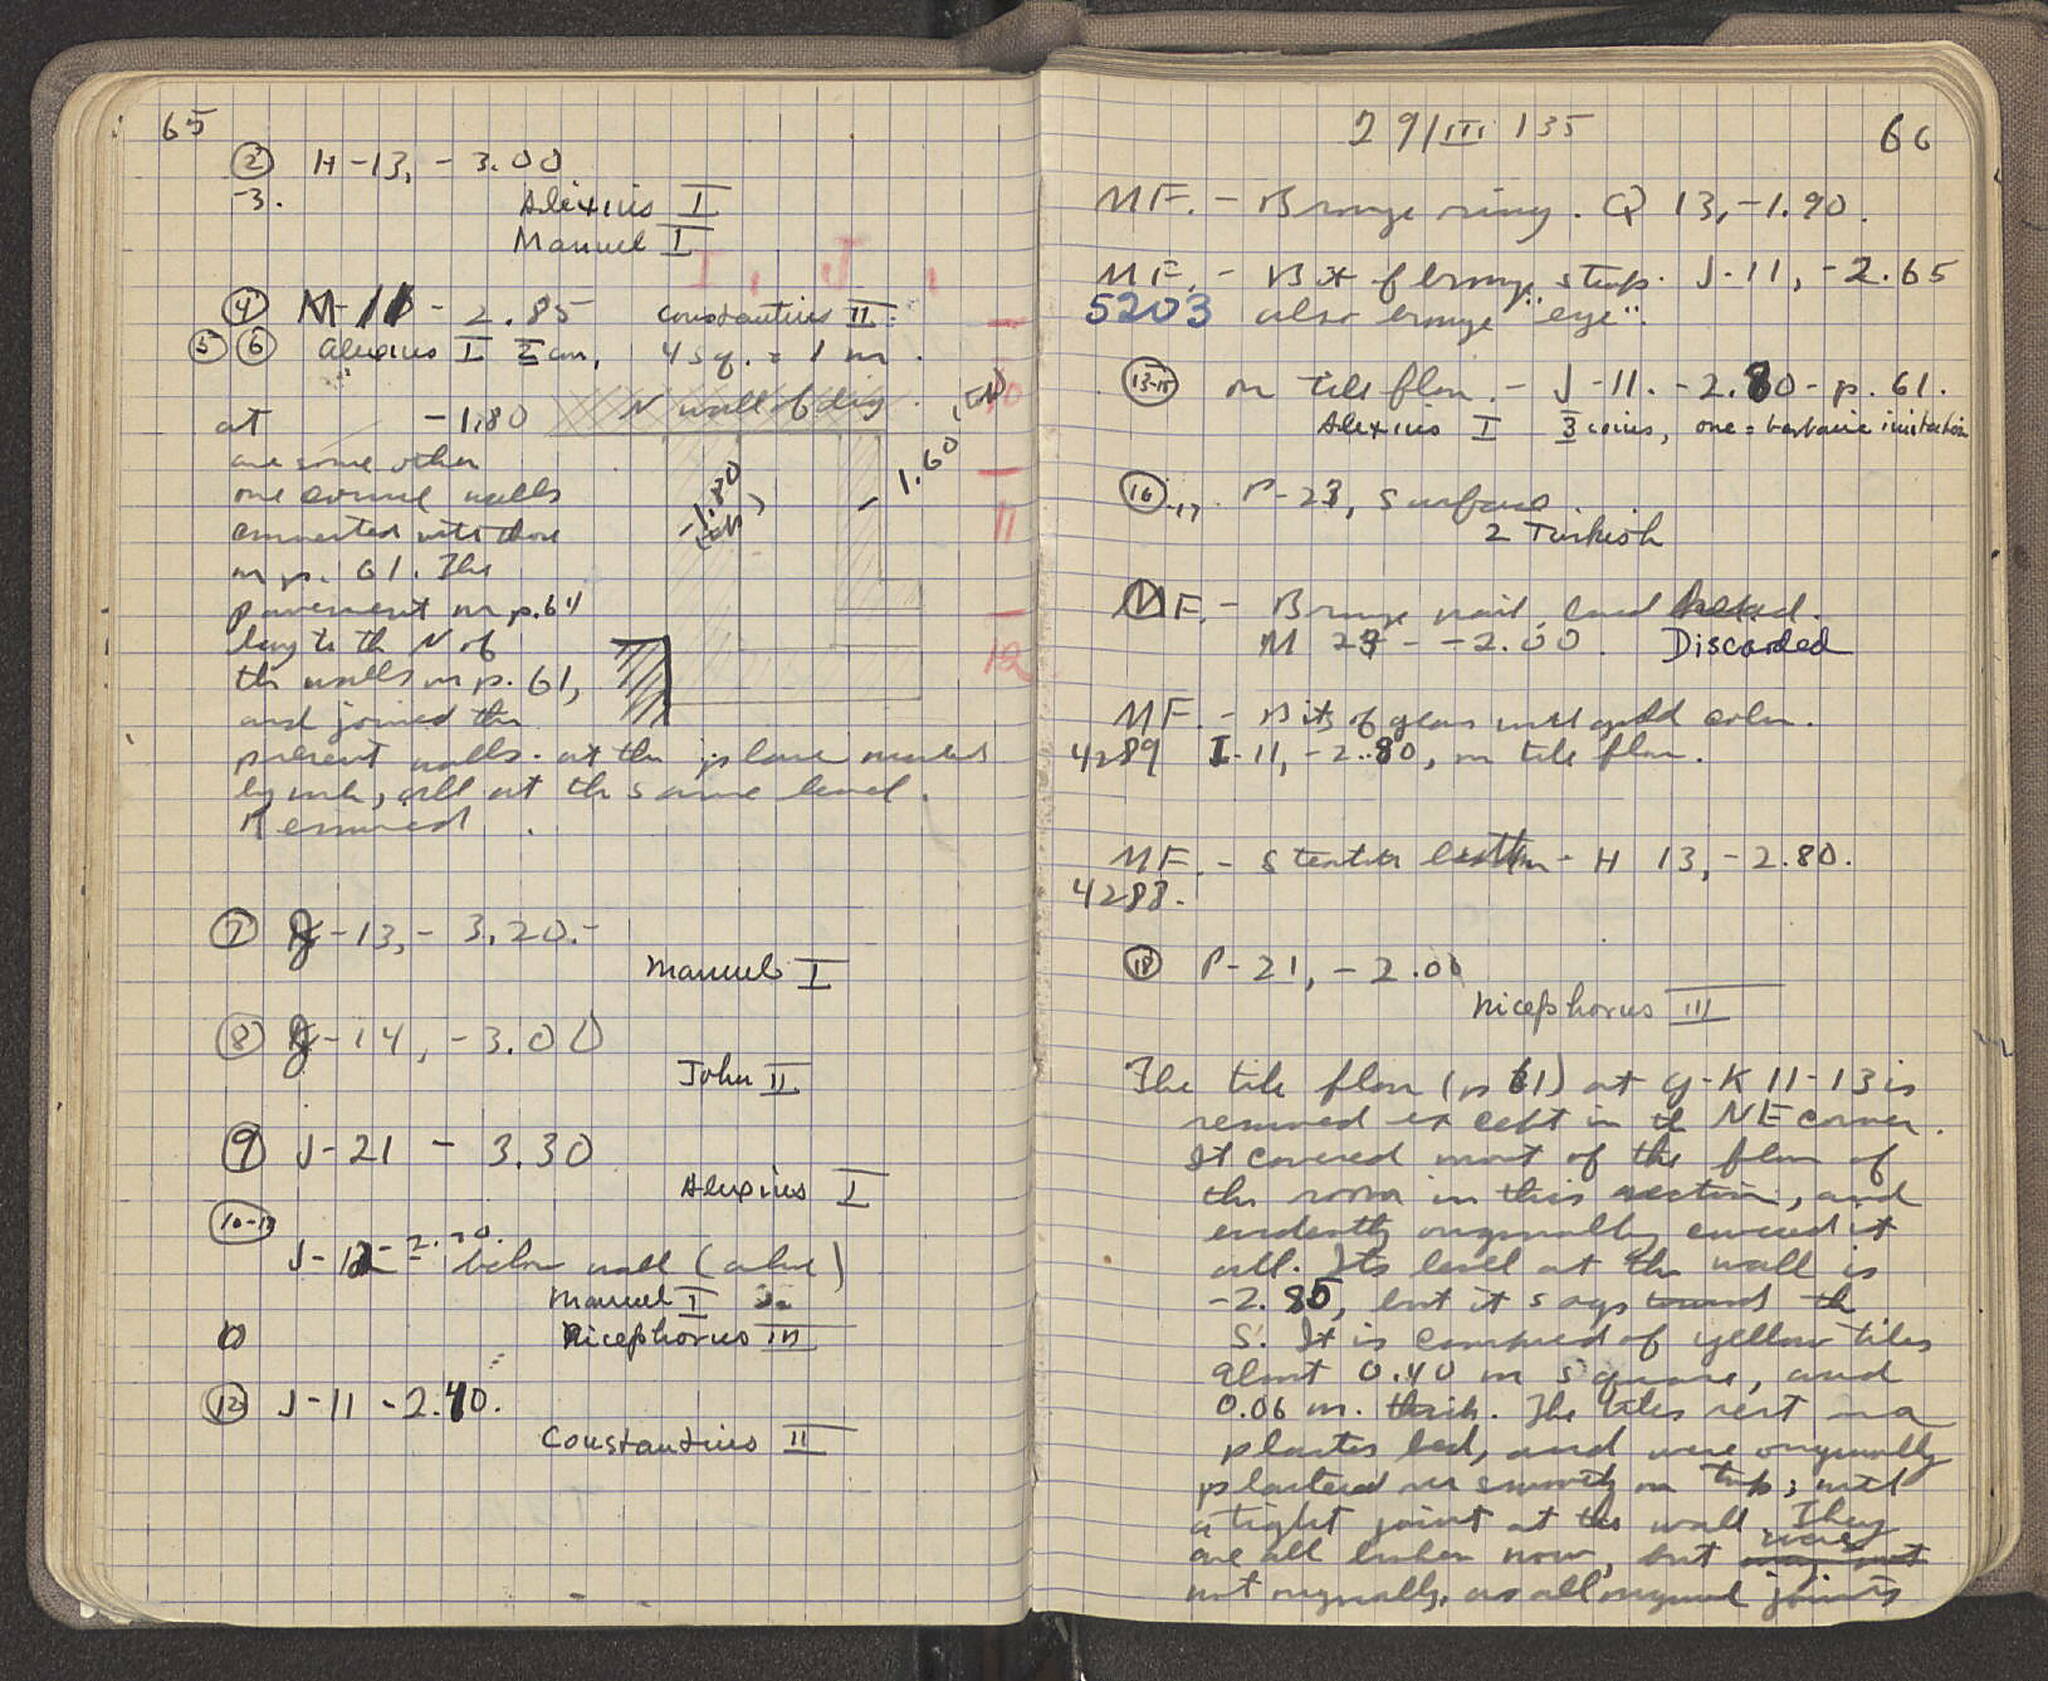 65
② H-13, - 3.00
-3.
Alexius I
Manuel I
I, J,
④ - 2.85 Constantius II
⑤ ⑥ Alexius I 2 cm, 4 sq. = 1 m.
N wall of dig.
at -1.80
are some other
one course walls
connected with those
on p. 61. The
pavement on p. 64
lay to the N of
the walls on p. 61,
and joined the
present walls at the place marked
by ink, all at the same level.
Removed.
-1.80
- 1.60
10
11
12
⑦ -13, - 3.20.-
Manuel I
⑧ -14, - 3.00
John II
⑨ J-21 - 3.30
Alexius I
below wall (above)
Manuel I
Nicephorus III
⑫ J-11 - 2.40.
Constantius II
29/III 135
66
MF. - Bronze ring. Q 13, -1.90.
MF. - Bit of bronze strap. J-11, -2.65
5203 also bronze "eye".
13-15 on tile floor. - J-11. -2.80 - p. 61.
Alexius I 3 coins, one = barbaric imitation
⑯-17. P-23, surface
2 Turkish
MF. - Bronze nail,
M - -2.00. Discarded
MF. - Bits of glass with gold color.
4289 I-11, -2.80, on tile floor.
MF. - Steatite button - H 13, -2.80.
4288.
⑱ P-21, - 2.00
Nicephorus III
The tile floor (p 61) at G-K 11-13 is
removed except in the NE corner.
It covered most of the floor of
the room in this section, and
evidently originally covered it
all. Its level at the wall is
-2.85, but it sags towards the
S. It is composed of yellow tiles
about 0.40 m square, and
0.06 m. thick. The tiles rest in a
plaster bed, and were originally
plastered over smoothly on top; with
a tight joint at the wall. They
are all broken now, but were
not originally, as all original joints